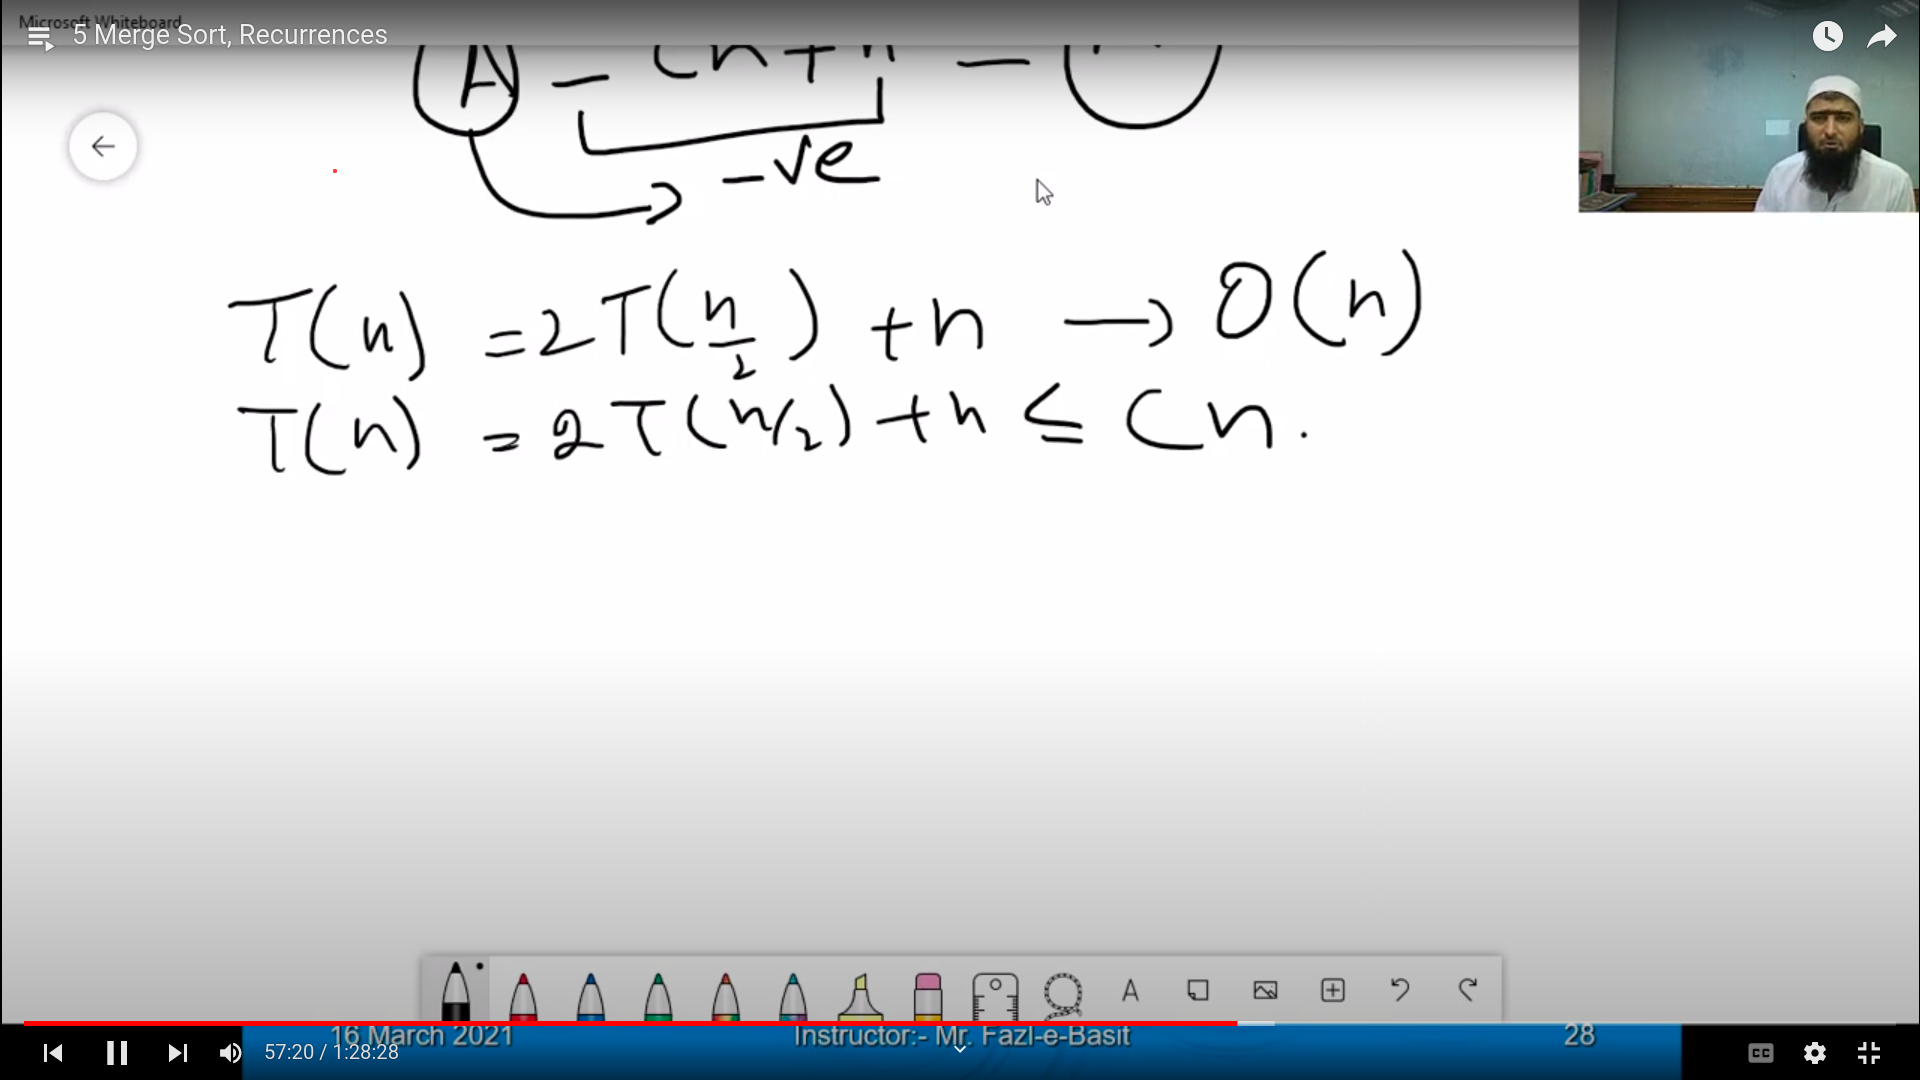 Microsoft Whiteboard
5 Merge Sort, Recurrences
A - Cn + n -
-ve
T(n) = 2T(n/2) + n → O(n)
T(n) = 2T(n/2) + n ≤ Cn.
A
16 March 2021 Instructor:- Mr. Fazl-e-Basit 28
57:20 / 1:28:28
CC